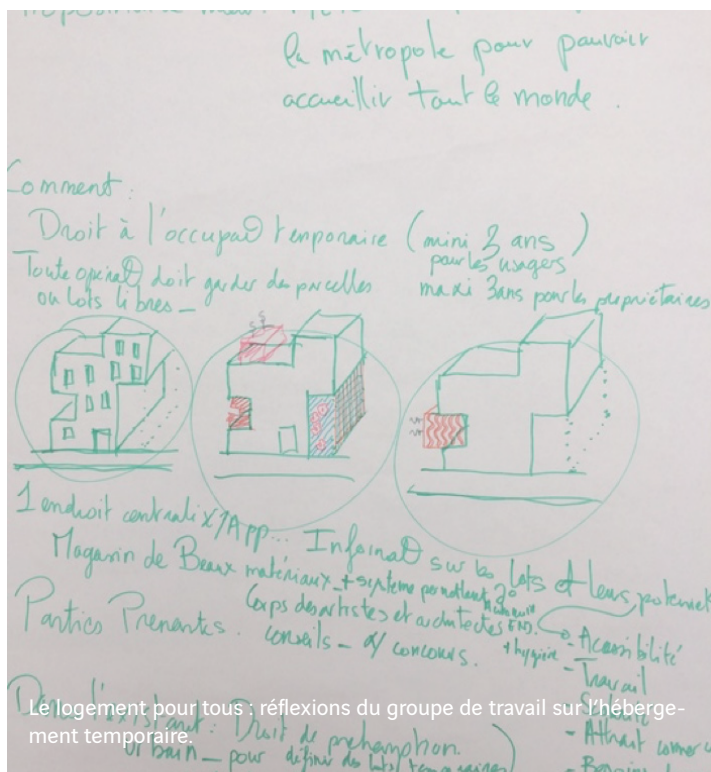 la métropole pour pouvoir
accueillir tout le monde.
Comment:
Droit à l'occupa° temporaire (mini 3 ans)
pour les usagers
Toute opéra° doit garder des parcelles
ou lots libres_
maxi 3ans pour les propriétaires
1 endroit centralix/App... Informa° sur les lots et leurs potentiel
Magasin de Beaux matériaux_+ système permettant
Corps des artistes et architectes
Parties Prenantes. conseils_ concours.
+ hygiène
- Accessibilité
- Travail
- Attrait
Dans l'existant: Droit de préhemption
urbain_ pour définir des lots temporaires)
Le logement pour tous : réflexions du groupe de travail sur l'héberge-
ment temporaire.